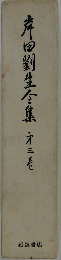 岸田劉生全集 第三巻
岩波書店